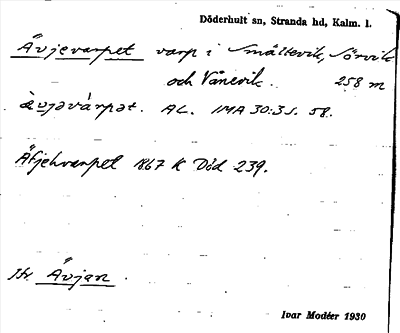 Döderhult sn, Stranda hd, Kalm. l.
Ävjevarpet varp i Smältevik, Sörvik
och Vånevik. 258 m
ä̀vjəvárpət. AL. IMA 30:3 s. 58.
Äfjehvarpet 1867 K Död 239.
Jfr Ävjan.
Ivar Modéer 1930